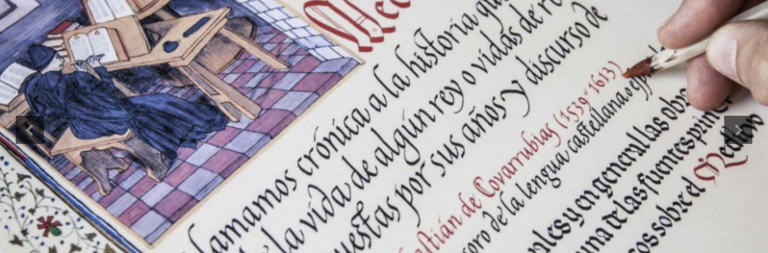 lamamos crónica a la historia
la vida de algún rey o vidas de
uestas por sus años y discurso de
stián de Covarrubias (1539-1613)
soro de la lengua castellana o
ales y en general las obr
una de las fuentes
os sobre el Medi